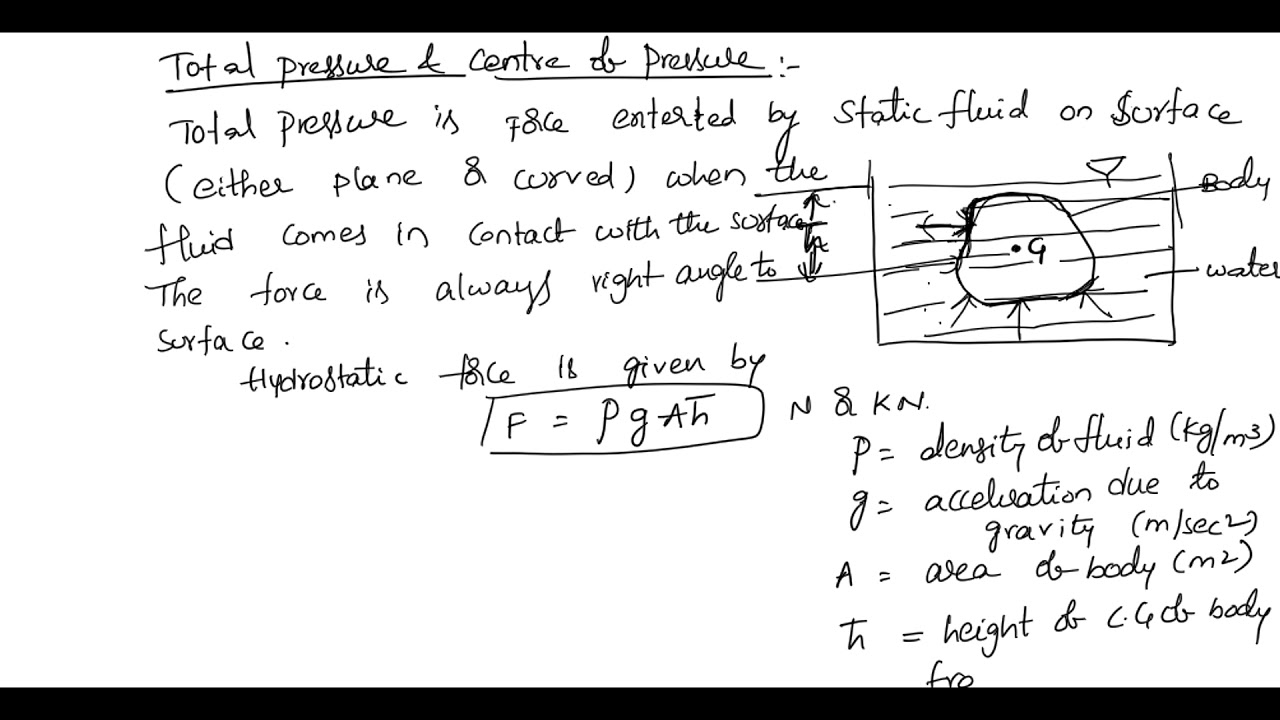 Total pressure & Centre of Pressure :-
Total Pressure is force enterted by Static fluid on Surface
(either plane & curved) when the
fluid comes in contact with the surface
The force is always right angle to
surface.
Body
G
h
water
Hydrostatic force is given by
F = ρgAh̄ N & KN.
ρ = density of fluid (kg/m3)
g = acceleration due to
gravity (m/sec2)
A = area of body (m2)
h̄ = height of C.G of body
fro